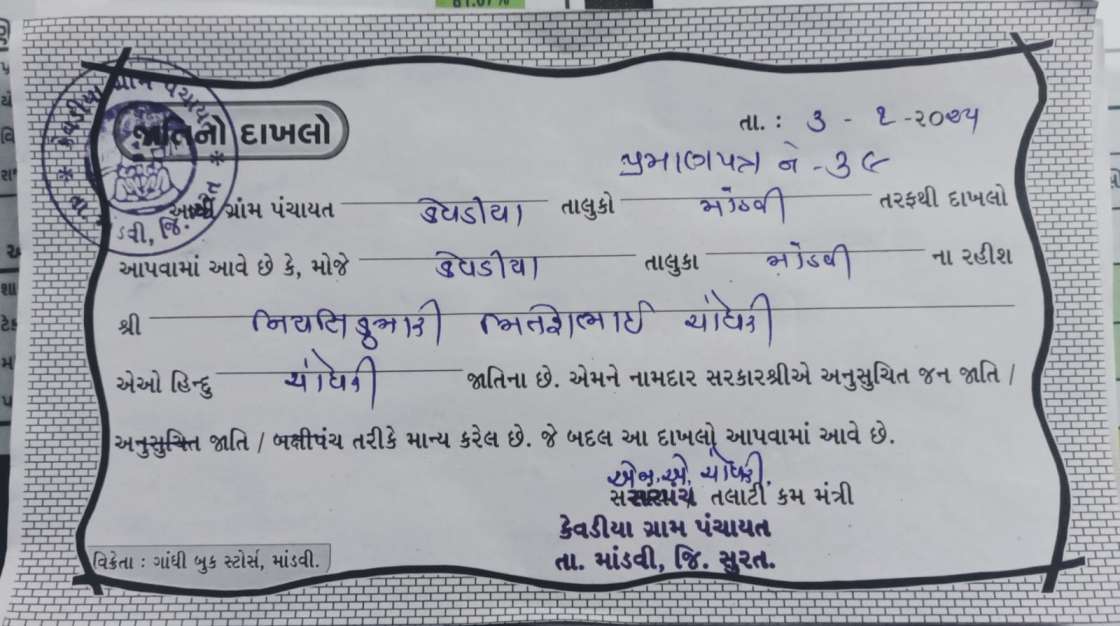 81.07%
કેવડીયા ગ્રામ પંચાયત
તા. માંડવી, જિ. સુરત
જાતિનો દાખલો
તા. : ૩ - ૨ -૨૦૨૫
પ્રમાણપત્ર નં -૩૯
ગ્રામ પંચાયત કેવડીયા તાલુકો માંડવી તરફથી દાખલો
આપવામાં આવે છે કે, મોજે કેવડીયા તાલુકા માંડવી ના રહીશ
શ્રી ચૌધરી
એઓ હિન્દુ ચૌધરી જાતિના છે. એમને નામદાર સરકારશ્રીએ અનુસુચિત જન જાતિ /
અનુસુચિત જાતિ / બક્ષીપંચ તરીકે માન્ય કરેલ છે. જે બદલ આ દાખલો આપવામાં આવે છે.
એન.એ. ચૌધરી
સરપંચ તલાટી કમ મંત્રી
કેવડીયા ગ્રામ પંચાયત
તા. માંડવી, જિ. સુરત.
વિક્રેતા : ગાંધી બુક સ્ટોર્સ, માંડવી.